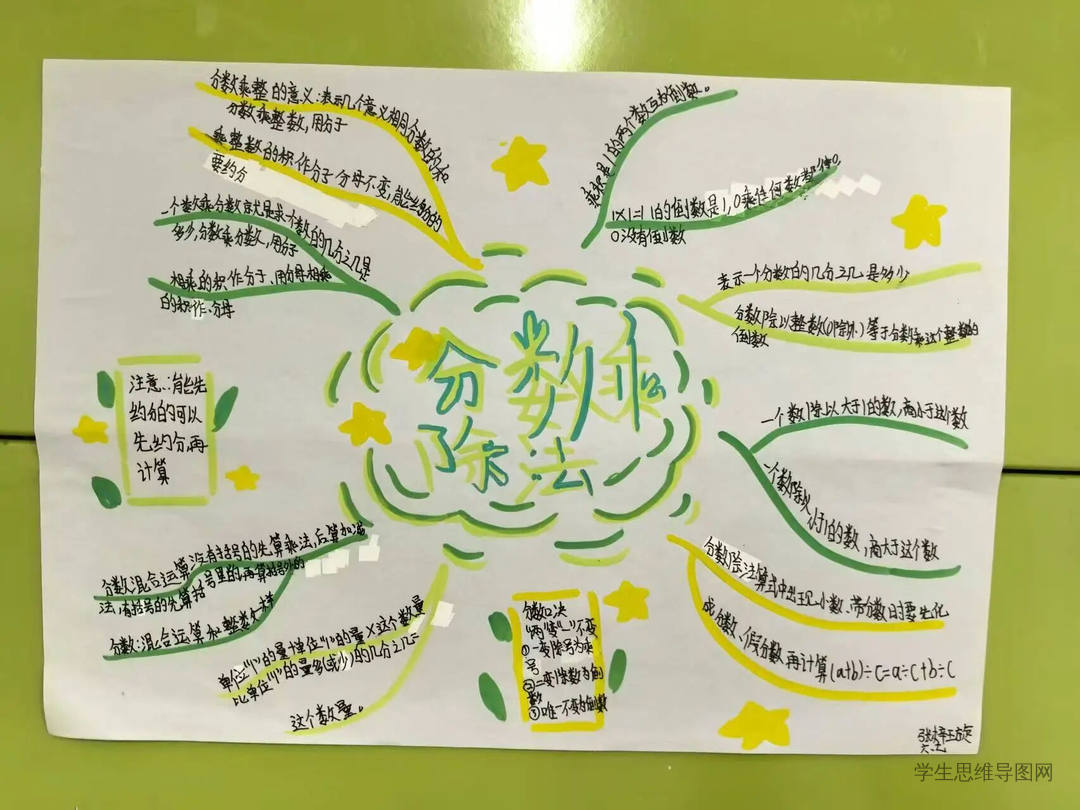 分数乘整的意义:表示几个意义相同分数的和
分数乘整数,用分子
乘整数的积作分子分母不变,能约分的
要约分
一个数乘分数就是求一个数的几分之几是
多少,分数乘分数,用分子
相乘的积作分子、用分母相乘
的积作.分母
乘积是1的两个数互为倒数。
1×1=1 1的倒数是1,0乘任何数都得0
0没有倒数
表示一个分数的几分之几是多少
分数除以整数(0除外)等于分数乘这个整数的
倒数
分数乘
除法
注意:能先
约分的可以
先约分,再
计算
一个数除以大于1的数,商小于这个数
一个数除以
小于1的数,商大于这个数
分数混合运算没有括号的先算乘法,后算加减
法,有括号的先算括号里的,再算括号外的
分数混合运算和整数一样
单位"1"的量±单位"1"的量×这个数量
比单位"1"的量多(或少)的几分之几=
这个数量。
分数口决
"两"变"一"不变
①一变除号为乘
号
②二变除数为倒
数
③唯一不变为倒数
分数除法算式中出现小数、带分数时要先化
成分数、假分数再计算(a+b)÷c=a÷c+b÷c
学生思维导图网